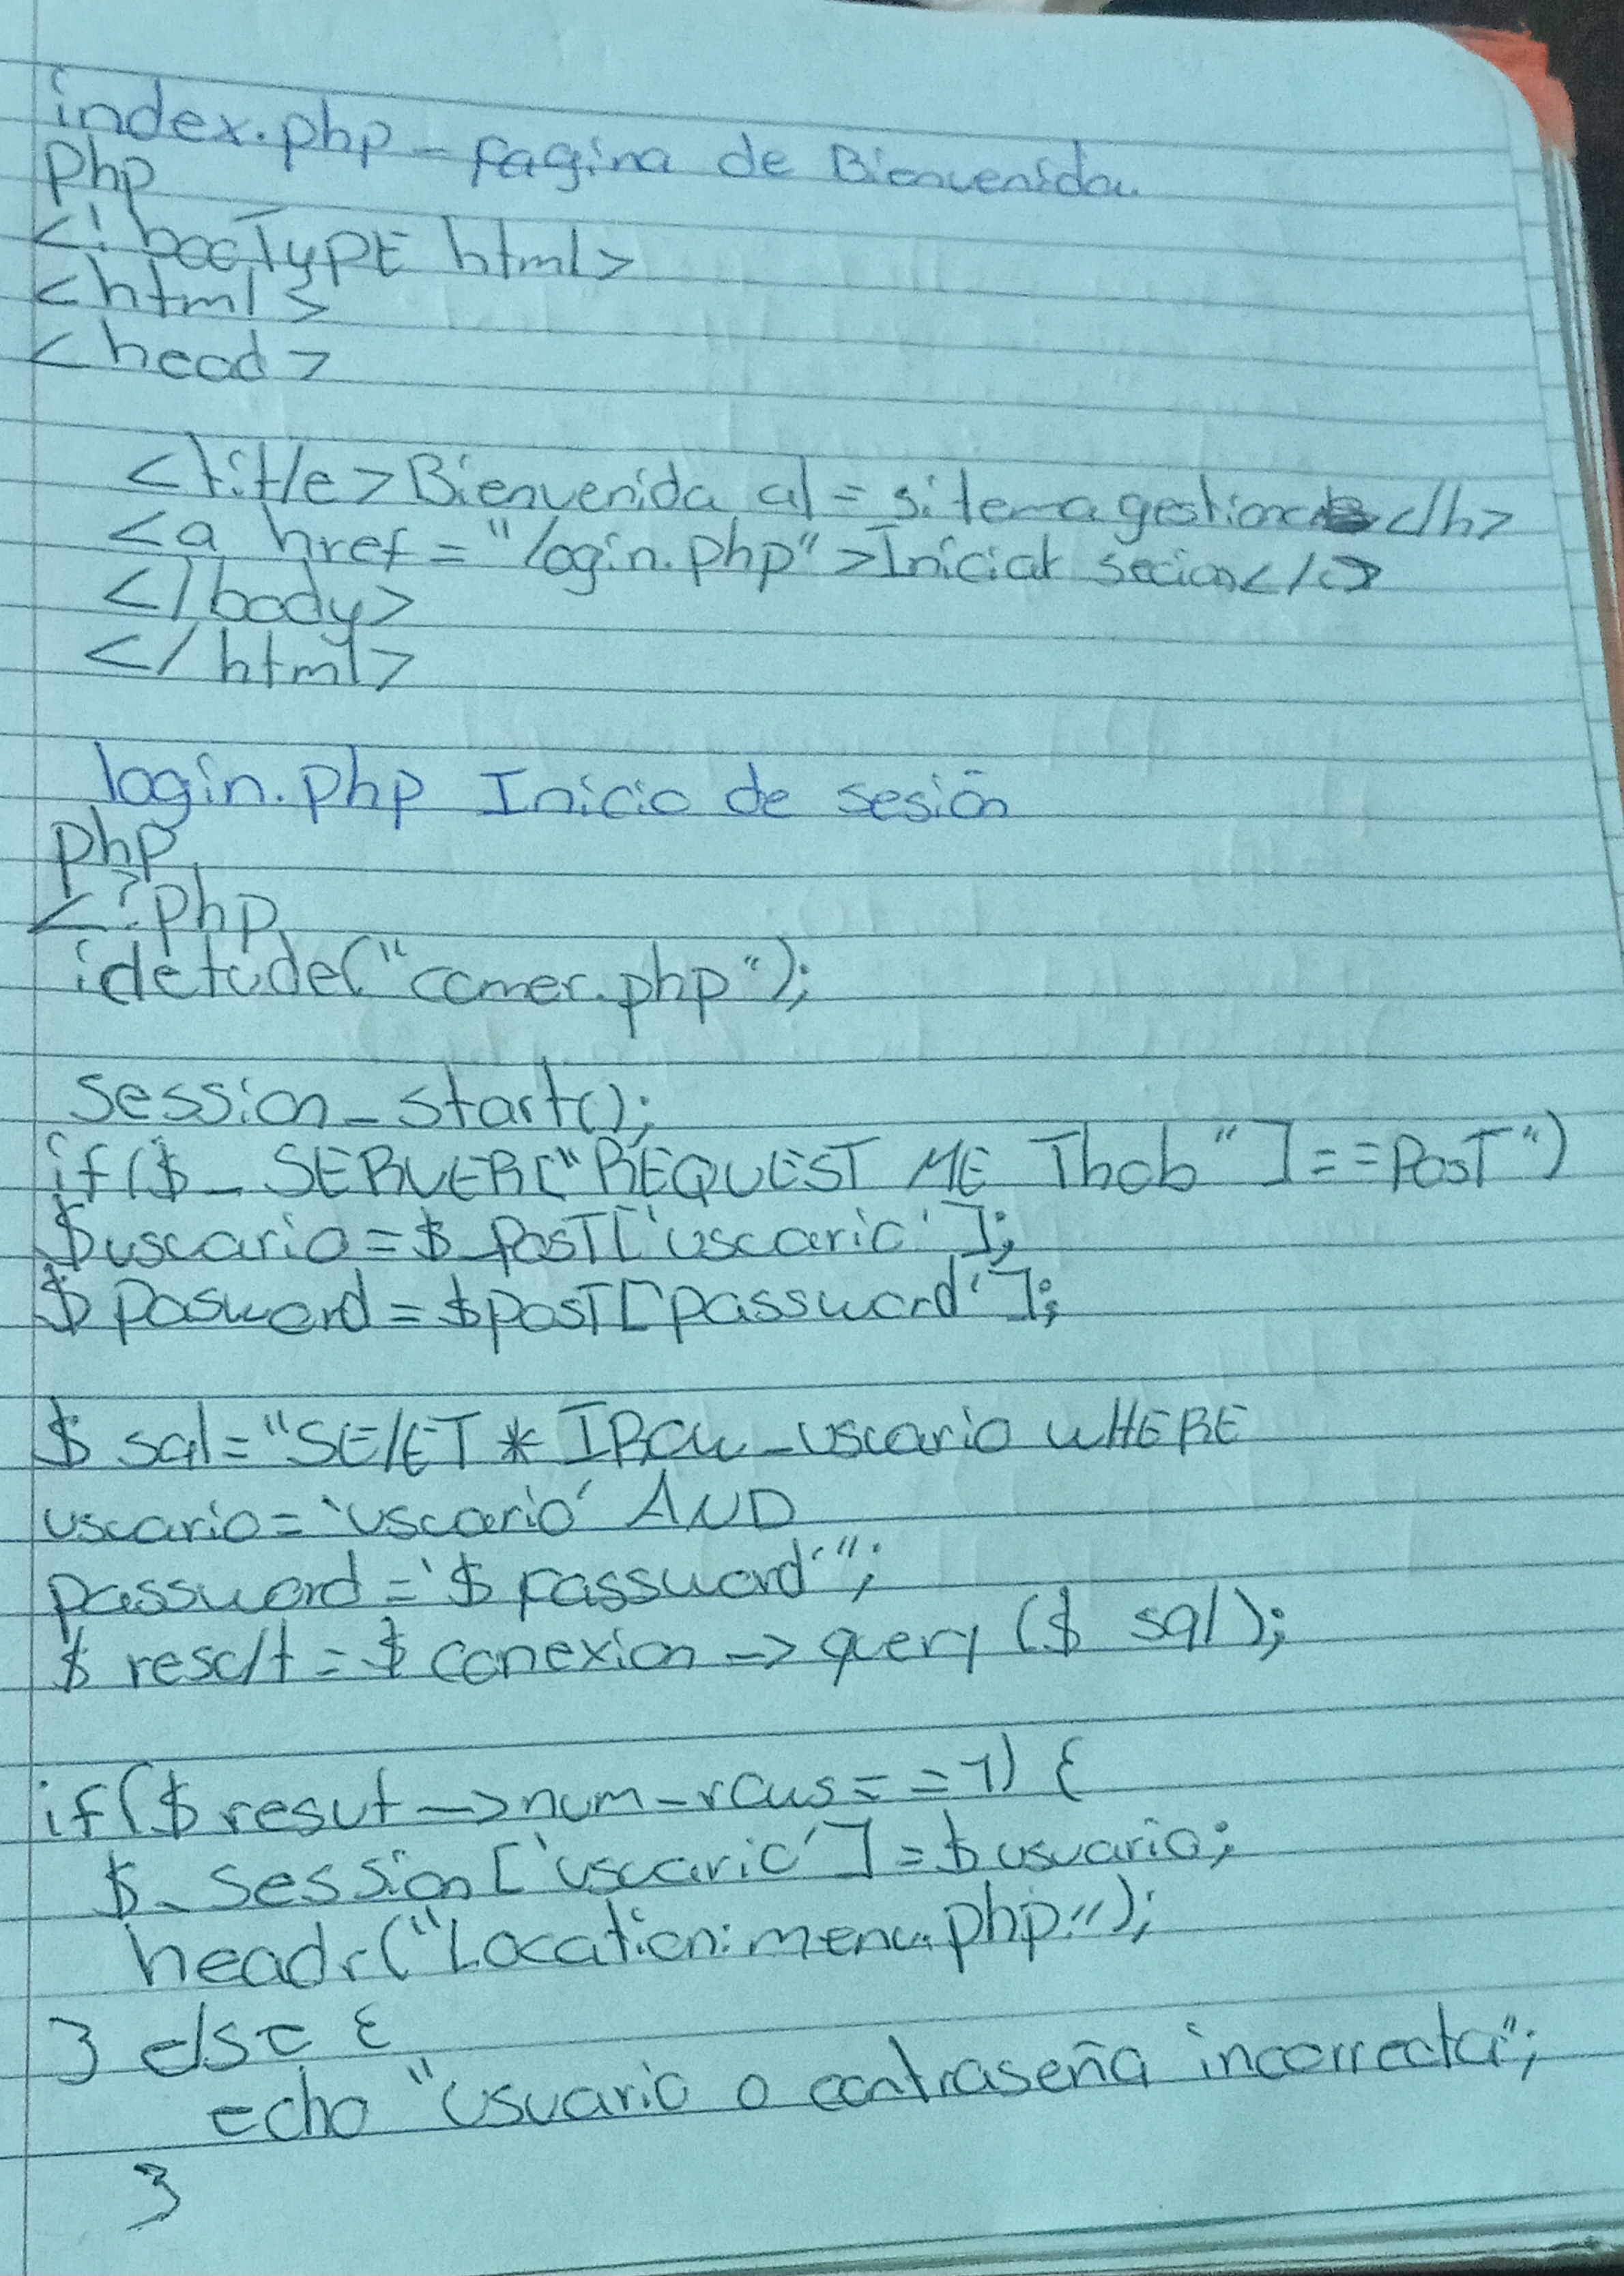 index.php - pagina de Bienvenida
php
<! DOCTYPE html>
<html>
<head>
<title>Bienvenida al = sitema gestion </h>
<a href="login.php">Iniciar secion</a>
</body>
</html>
login.php Inicio de sesión
php
<?php
idetude("comer.php");
session_start();
if($_SERVER["REQUEST ME Thob"]==POST")
$usuario=$_POST['usuario'];
$ Pasword=$POST['password'];
$ sql="SELET * IROW_usuario WHERE
usuario='usuario' AND
password='$ password'";
$ result=$ conexion -> query ($ sql);
if($resut->num-rows==1) {
$_session['usuario']=$usuario;
headr("Location:menu.php");
} else {
echo "usuario o contraseña incorrecta";
}